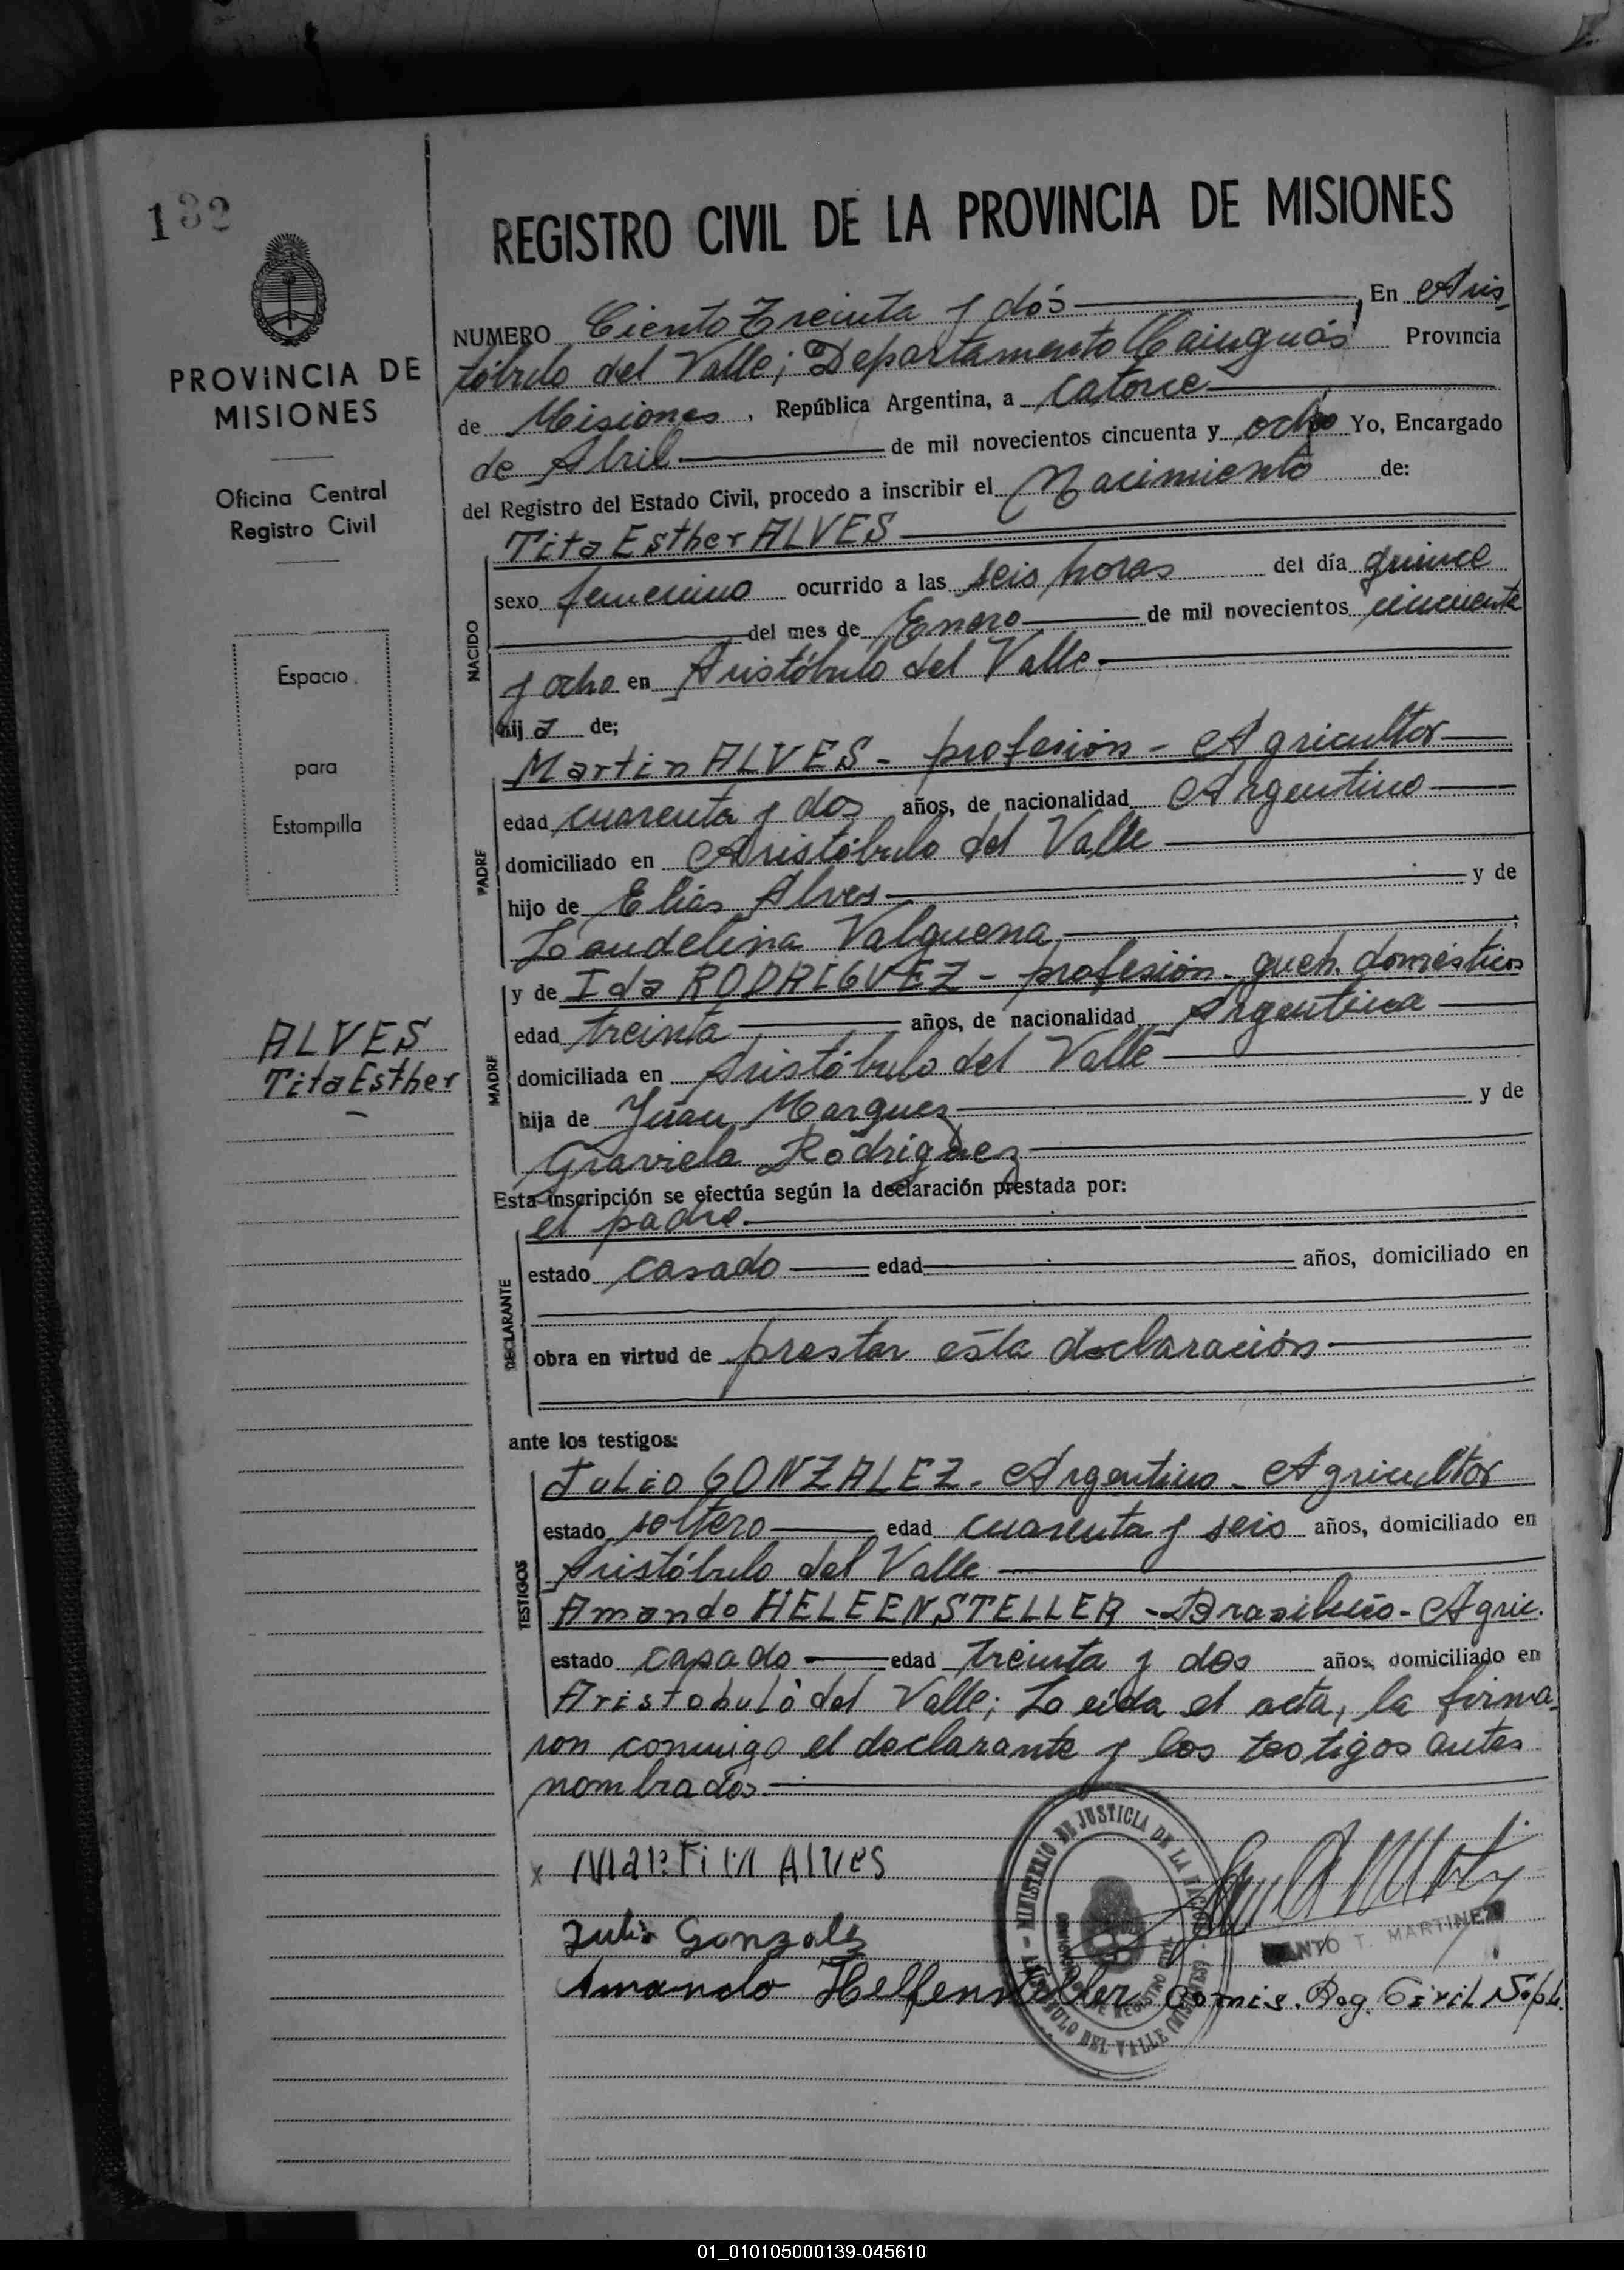 132
PROVINCIA DE
MISIONES
Oficina Central
Registro Civil
Espacio
para
Estampilla
ALVES
Tita Esther
REGISTRO CIVIL DE LA PROVINCIA DE MISIONES
NUMERO Ciento Treinta y dós, En Aris-
tóbulo del Valle; Departamento Cainguás Provincia
de Misiones, República Argentina, a catorce
de Abril de mil novecientos cincuenta y ocho Yo, Encargado
del Registro del Estado Civil, procedo a inscribir el Nacimiento de:
NACIDO
Tita Esther ALVES
sexo femenino ocurrido a las seis horas del día quince
del mes de Enero de mil novecientos cincuenta
y ocho en Aristóbulo del Valle
hija de;
PADRE
Martin ALVES - profesión - Agricultor
edad cuarenta y dos años, de nacionalidad Argentino
domiciliado en Aristóbulo del Valle
hijo de Elías Alves y de
Laudelina
MADRE
y de Ida RODRIGUEZ - profesión - queh. domésticos
edad treinta años, de nacionalidad Argentina
domiciliada en Aristóbulo del Valle
hija de Juan Marquez y de
Graviela Rodriguez
Esta inscripción se efectúa según la declaración prestada por:
DECLARANTE
el padre
estado casado edad años, domiciliado en
obra en virtud de prestar esta declaración
ante los testigos:
TESTIGOS
Julio GONZALEZ - Argentino - Agricultor
estado soltero edad cuarenta y seis años, domiciliado en
Aristóbulo del Valle
Amando HELFENSTELLER - Brasileño - Agric.
estado casado edad treinta y dos años, domiciliado en
Aristobulo del Valle; Leída el acta, la firma-
ron conmigo el declarante y los testigos antes
nombrados
x Martin Alves
Julio Gonzalez
Amando Helfensteller
MINISTERIO DE JUSTICIA DE LA NACION
REGISTRO CIVIL
ARISTOBULO DEL VALLE (MISIONES)
T. MARTINEZ
Comis. Reg. Civil Supl.
01_010105000139-045610